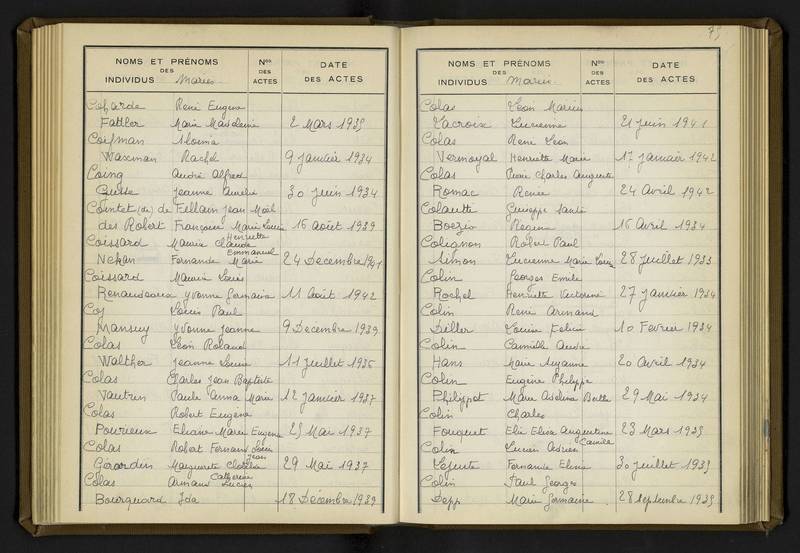 NOMS ET PRÉNOMS
DES
INDIVIDUS Mariés
Nos
DES
ACTES
DATE
DES ACTES
René Eugène
Fattler Marie Madeleine 2 Mars 1935
Coifman
Waxman Rachel 9 janvier 1934
Coing André Alfred
Jeanne Aurelie 30 juin 1934
Cointet (de) de Fillain Jean Noël
des Robert Françoise Marie Louise 16 août 1939
Henriette
Coissard Maurice Claude
Emmanuel
Fernande Marie 24 Decembre 1941
Coissard Maurice Louis
Renaudeaux Yvonne Germaine 11 Août 1942
Louis Paul
Mansuy Yvonne Jeanne 9 Decembre 1939
Colas Léon Roland
Walther Jeanne Louise 11 juillet 1936
Colas Charles Jean Baptiste
Vautrin Paule Anna Marie 12 janvier 1937
Colas Robert Eugène
Pourieux Marie Eugène Mai 1937
Colas Robert Fernand Louis
Jean
Girardin Marguerite Clotilde 29 Mai 1937
Catherine
Colas Armand Lucien
Bourquard Ida 18 Décembre 1939
75
NOMS ET PRÉNOMS
DES
INDIVIDUS Mariés
Nos
DES
ACTES
DATE
DES ACTES
Colas Léon Marius
Lacroix Lucienne 21 juin 1941
Colas René Léon
Vermoyal Henriette Marie 17 janvier 1942
Colas Charles Auguste
Romac Renée 24 Avril 1942
Colautte Giuseppe Santi
Boezio Regina 16 Avril 1934
Colignon Robert Paul
Simon Lucienne Marie Louise 28 juillet 1933
Colin Georges Emile
Rochel Henriette Victorine 27 janvier 1934
Colin René Armand
Diller Louise 10 Fevrier 1934
Colin Camille André
Hans Marie Suzanne 20 Avril 1934
Colin Eugène Philippe
Philippot Marie Berthe 29 Mai 1934
Colin Charles
Fouquet Elise Augustine 23 Mars 1935
Camille
Colin Lucien Adrien
Fernande Elina 30 juillet 1935
Colin Paul Georges
Depp Marie Germaine 28 septembre 1935